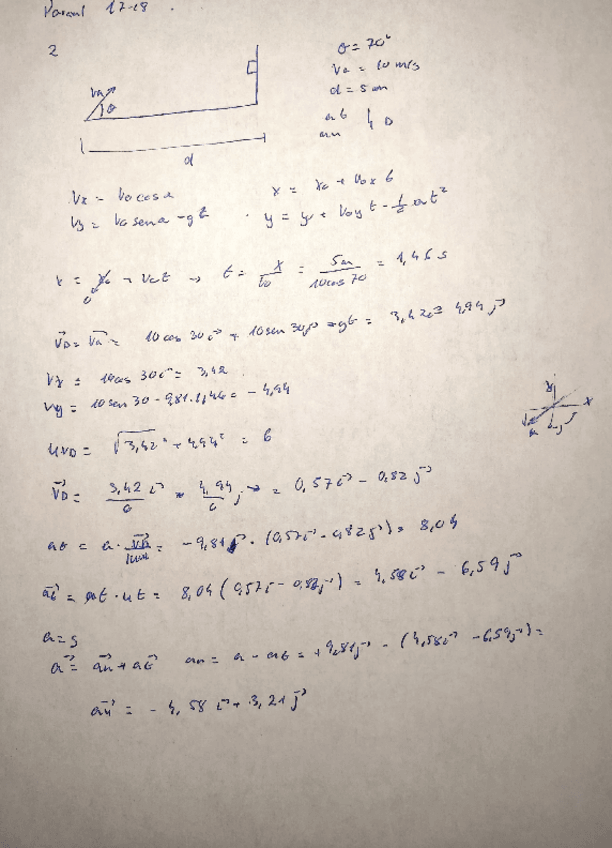 Parcial 17-18.
2
θ = 70°
Va
θ
Va = 10 m/s
d = 5 m
at
an } D
d
Vx = Vo cos α
x = xo + Vox t
Vy = Vo sen α - gt
y = yo + Voy t - 1/2 at²
x = xo + Vo t → t = x/Vo = 5m/10cos 70 = 1,46 s
0
VD = Va = 10 cos 30 i + 10 sen 30 j - gt = 3,42 i - 4,94 j
Vx = 10 cos 30 i = 3,42
Vy = 10 sen 30 - 9,81 · 1,46 = - 4,94
y
x
uVD = √3,42² + 4,94² = 6
VD = 3,42 i/6 - 4,94/6 j = 0,57 i - 0,82 j
at = a · VD/|VD| = - 9,81 j · (0,57 i - 0,82 j) = 8,04
at = at · ut = 8,04 (0,57 i - 0,82 j) = 4,58 i - 6,59 j
a = g
a = an + at an = a - at = + 9,81 j - (4,58 i - 6,59 j) =
an = - 4,58 i + 3,21 j